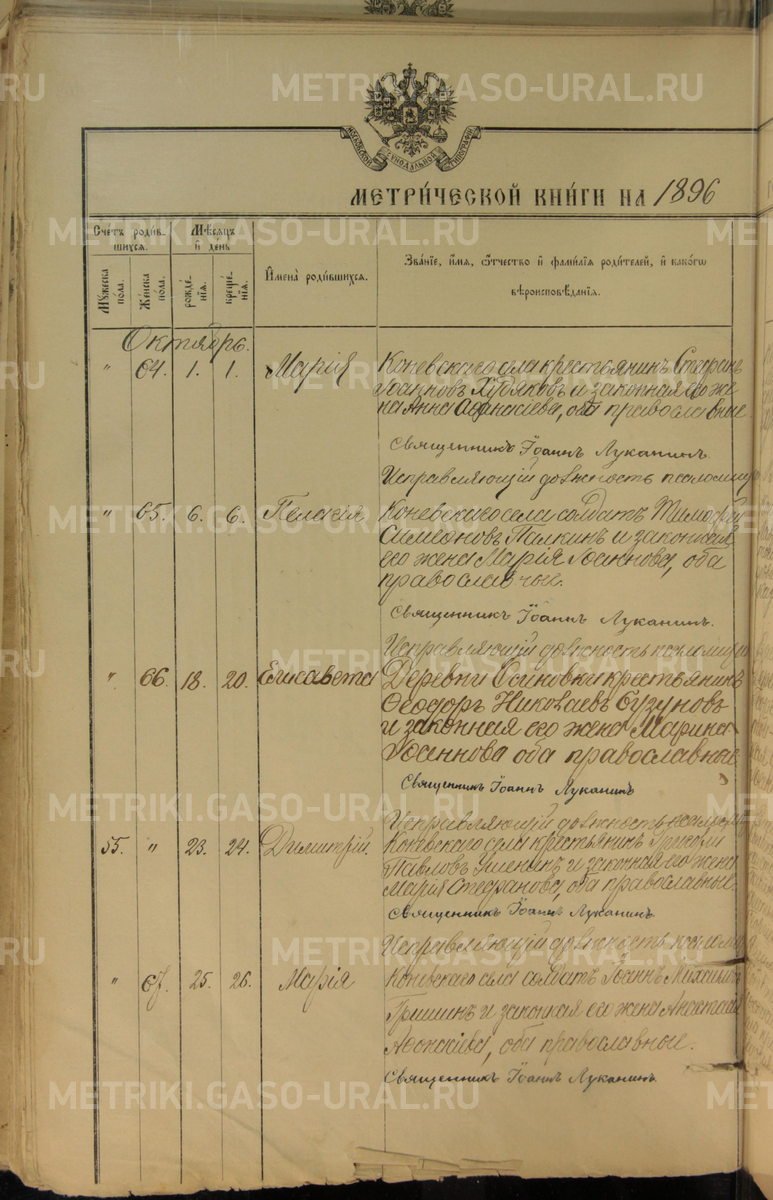 МОСКОВСКОЙ СѴНОДАЛЬНОЙ ТИПОГРАФІИ
МЕТРИ́ЧЕСКОЙ КНИ́ГИ НА 1896
Счетъ роди́вшихся.
Мѣ́сяцъ и҆ де́нь
И҆мена̀ роди́вшихся.
Зва́нїе, и҆́мѧ, ѻ҆́тчество и҆ фами́лїѧ роди́телей, и҆ како́гѡ вѣроисповѣ́данїѧ.
Мꙋжеска по́ла.
Же́нска по́ла.
рожде́нїѧ.
креще́нїѧ.
Октябрь.
" 64. 1. 1. Марія
Коневскаго села крестьянинъ Стефанъ
Іоанновъ Худяковъ и законная его же
на Анна Афанасіева, оба православные
Священникъ Іоаннъ Луканинъ.
Исправляющій должность псаломщи
" 65. 6. 6. Пелагія
Коневскаго села солдатъ Тимофей
Симеоновъ Палкинъ и законная
его жена Марія Іоаннова, оба
православные.
Священникъ Іоаннъ Луканинъ.
Исправляющій должность псаломщи
" 66. 18. 20. Елисавета
Деревни Осиновки крестьянинъ
Ѳеодоръ Николаевъ Бузуновъ
и законная его жена Марина
оба православные
Священникъ Іоаннъ Луканинъ
Исправляющій должность псаломщи
55. " 23. 24. Димитрій.
Коневскаго села крестьянинъ Григорій
Павловъ и законная его жена
Марія Стефанова, оба православные.
Священникъ Іоаннъ Луканинъ.
Исправляющій должность псаломщи
" 67. 25. 26. Марія
Коневскаго села солдатъ Іоаннъ Михаиловъ
Гришинъ и законная его жена Анастасія
оба православные.
Священникъ Іоаннъ Луканинъ.
METRIKI.GASO-URAL.RU